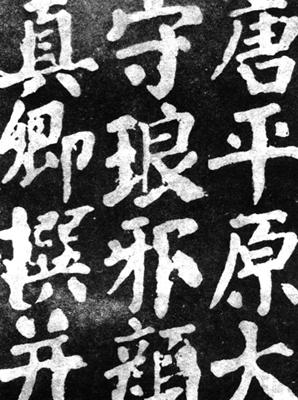 唐平原大
守琅邪顏
真卿撰并